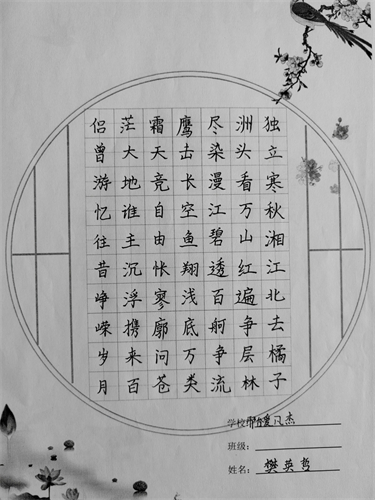 独立寒秋湘江北去橘子
洲头看万山红遍争层林
尽染漫江碧透百舸争流
鹰击长空鱼翔浅底万类
霜天竞自由怅寥廓问苍
茫大地谁主沉浮携来百
侣曾游忆往昔峥嵘岁月
学校
班级:
姓名: 樊英哲